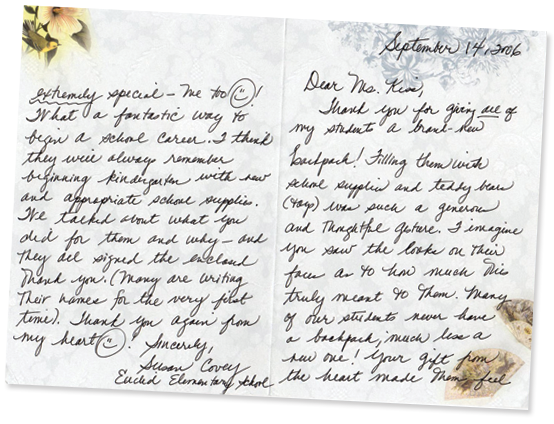 September 14, 2006
Dear Ms. Kim,
Thank you for giving all of
my students a brand-new
backpack! Filling them with
school supplies and teddy bears
was such a generous
and thoughtful gesture. I imagine
you saw the looks on their
faces as to how much this
truly meant to them. Many
of our students never have
a backpack, much less a
new one! Your gift from
the heart made them feel
extremely special – me too!
What a fantastic way to
begin a school career. I think
they will always remember
beginning kindergarten with new
and appropriate school supplies.
We talked about what you
did for them and why – and
they all signed the enclosed
Thank you. (Many are writing
their names for the very first
time). Thank you again from
my heart! Sincerely,
Susan Covey
Euclid Elementary School